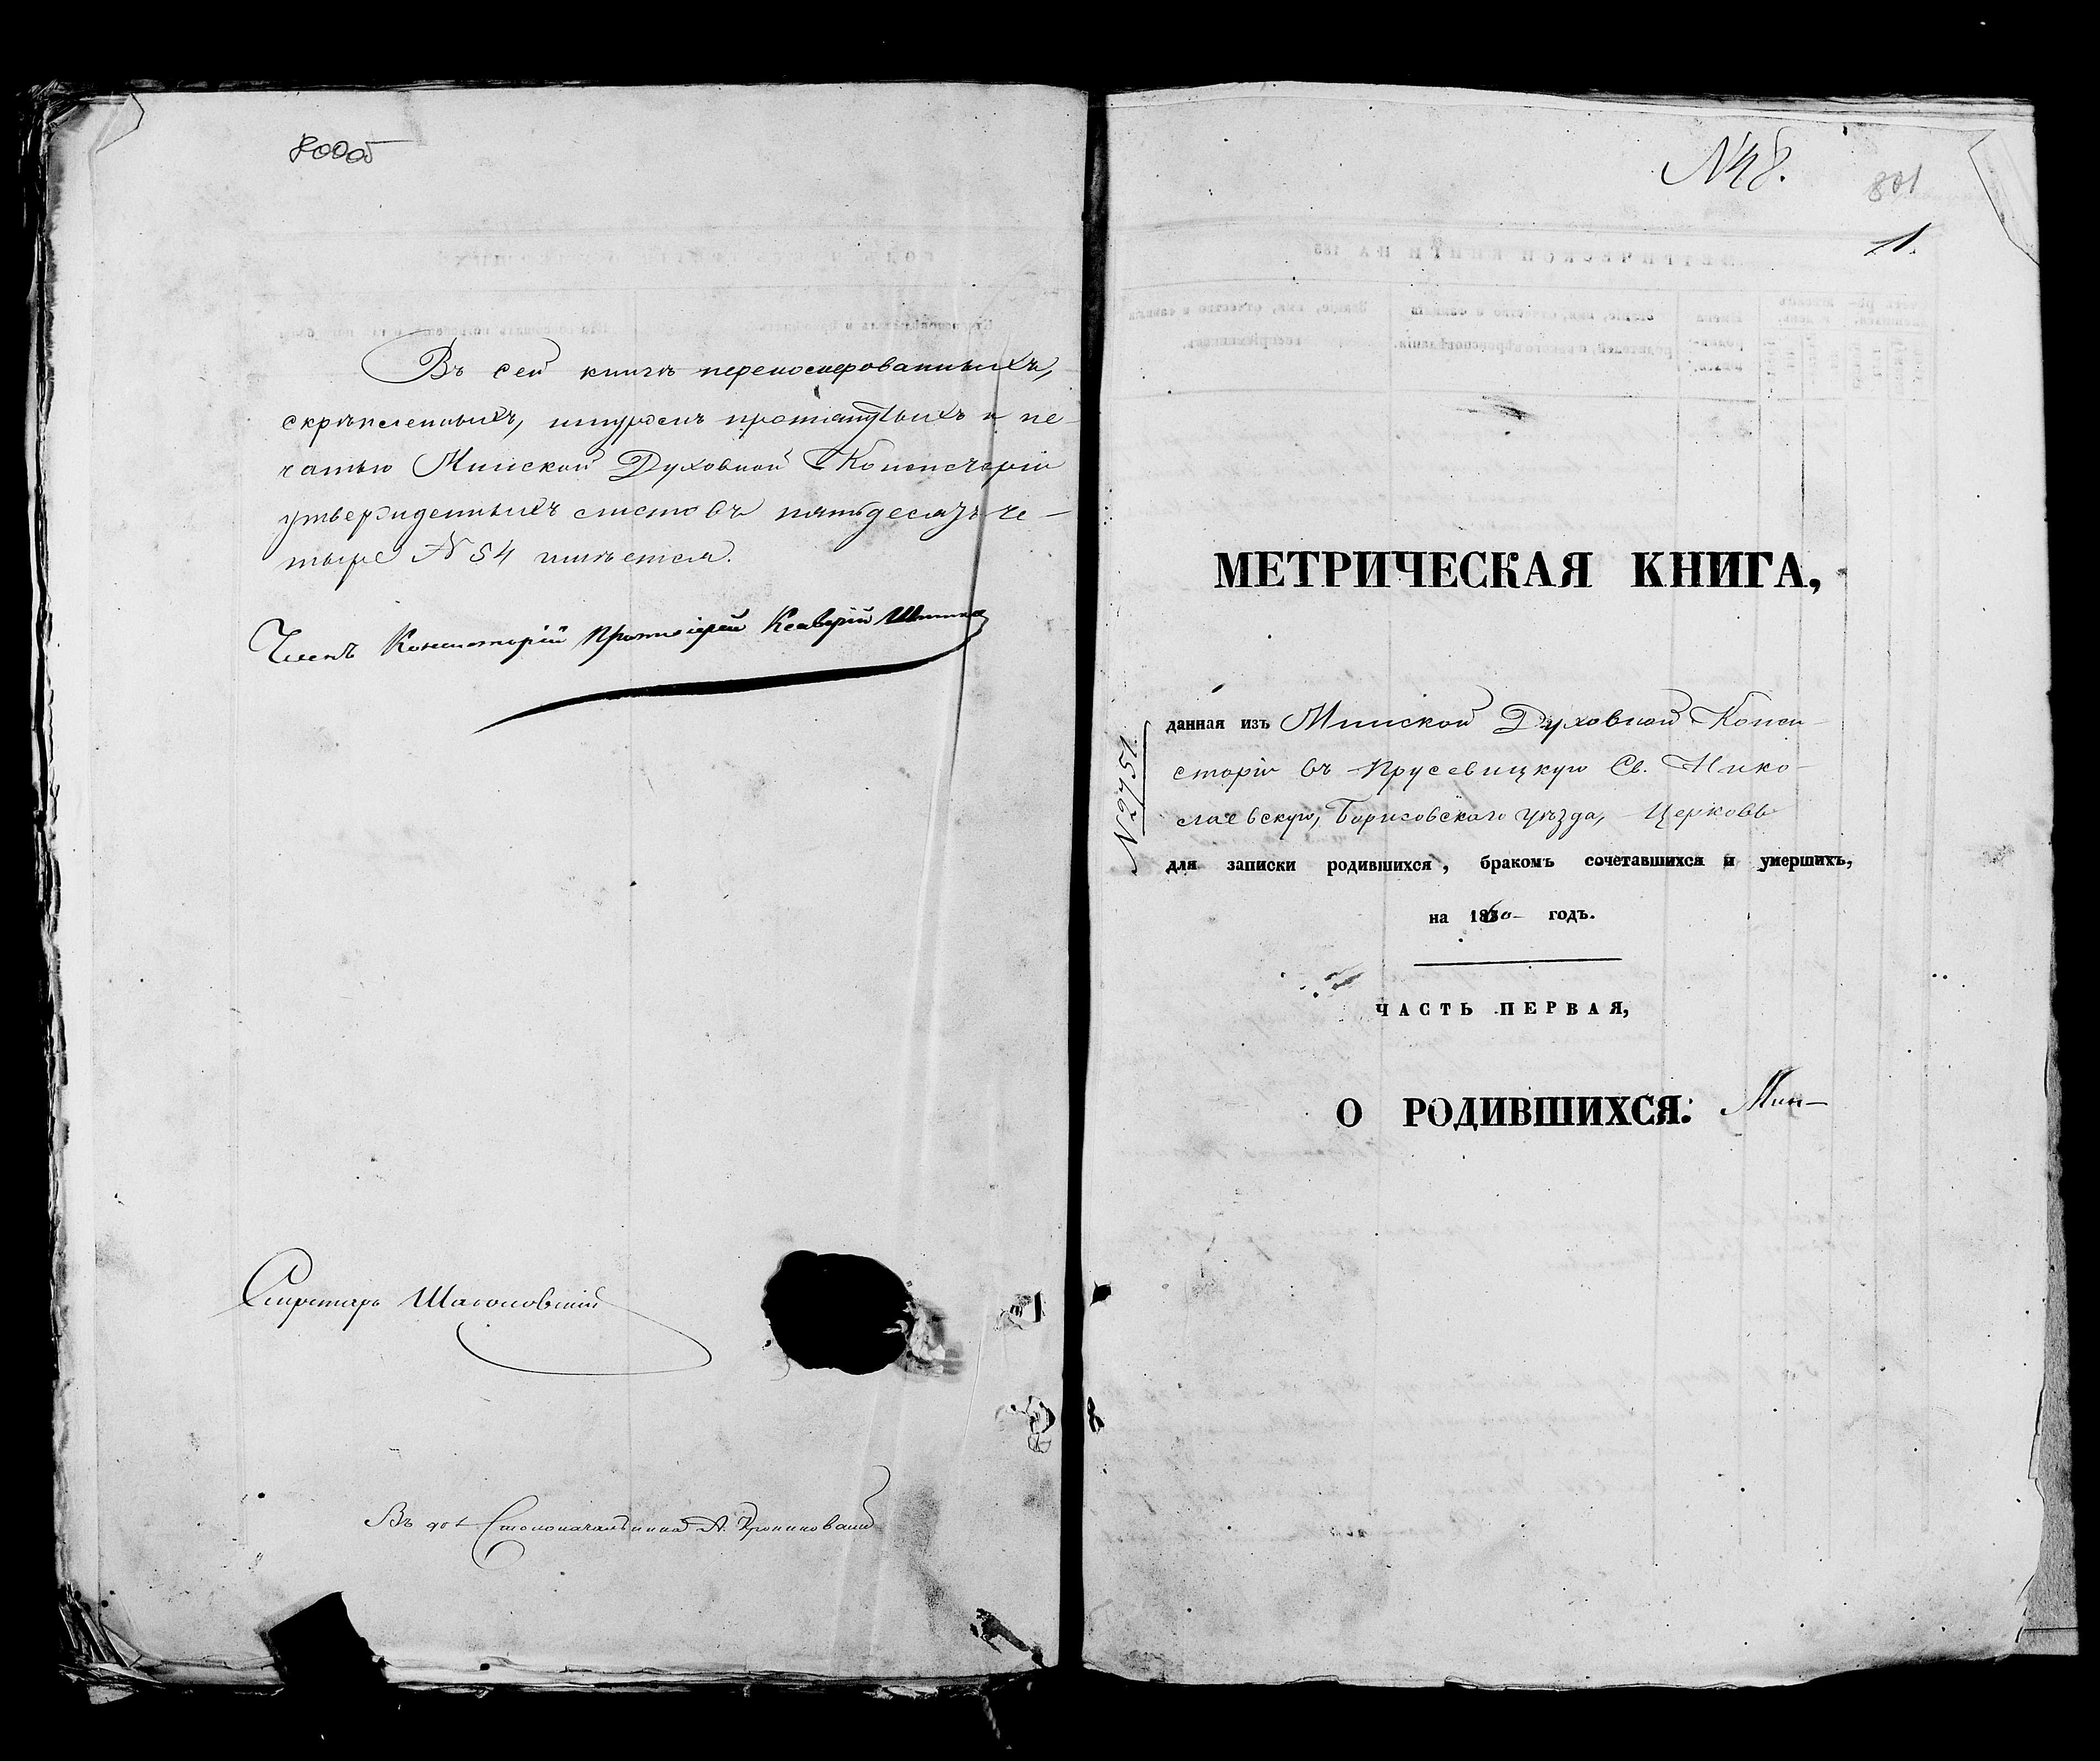 800об
Въ сей книгѣ перенумерованныхъ,
скрѣпленныхъ, шнуромъ протянутыхъ и пе-
чатью Минской Духовной Консисторіи
утвержденныхъ листовъ пятьдесятъ че-
тыре N 54 имѣется.
Членъ Консисторіи Протоіерей Ксаверій
Секретарь
Въ дол. Столоначальника А.
N 48.
801
1.
МЕТРИЧЕСКАЯ КНИГА,
данная изъ Минской Духовной Конси-
сторіи въ Прусевицкую Св. Нико-
лаевскую, Борисовскаго уѣзда, Церковь
для записки родившихся, бракомъ сочетавшихся и умершихъ,
на 1860 годъ.
ЧАСТЬ ПЕРВАЯ,
О РОДИВШИХСЯ. Мин-